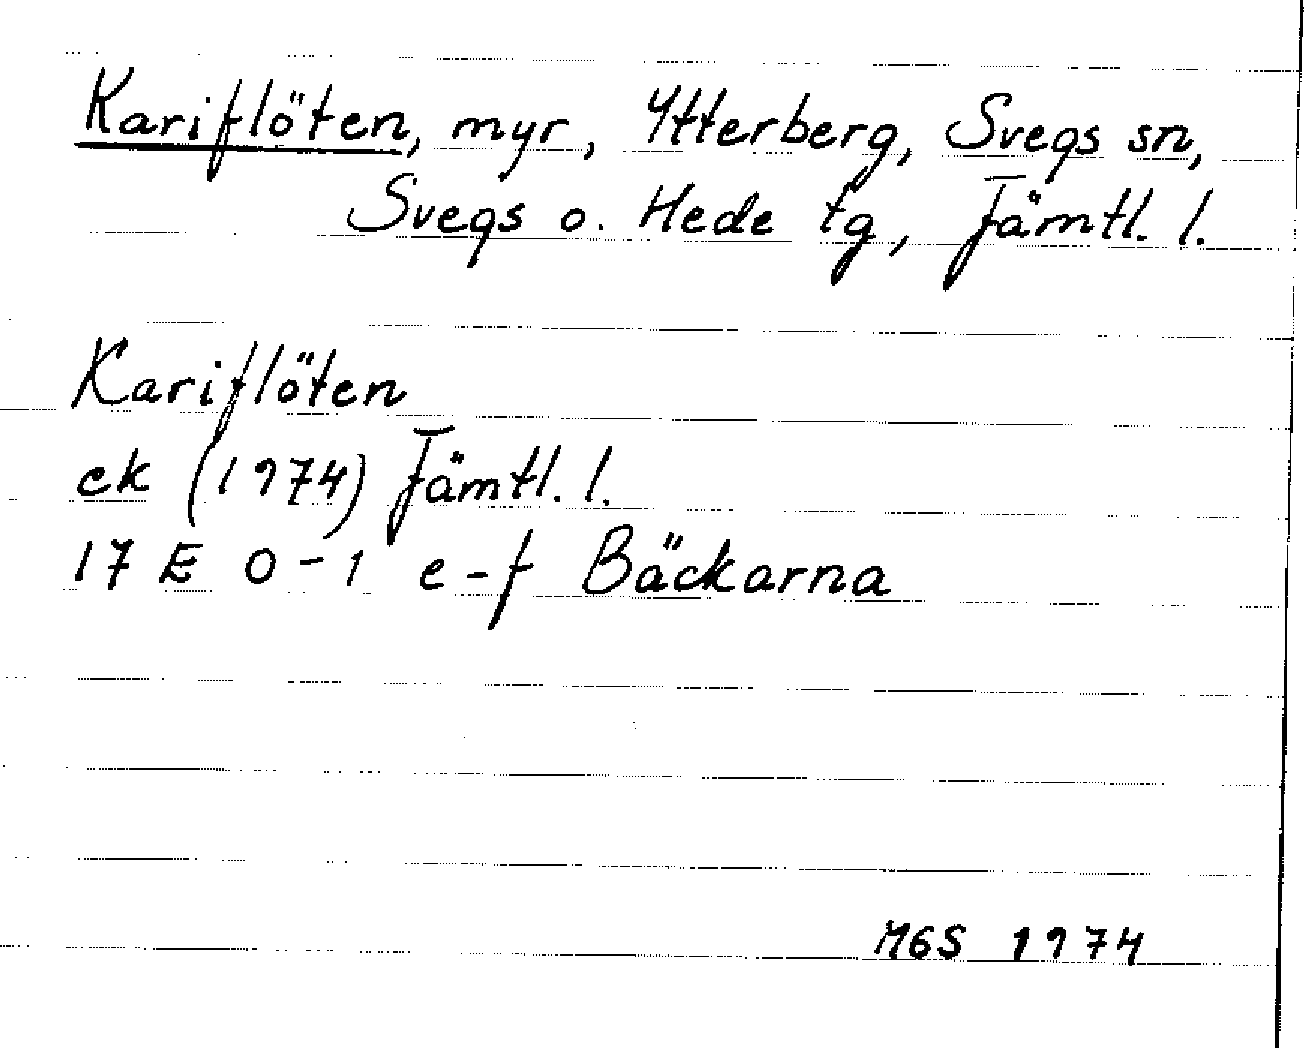 Kariflöten, myr, Ytterberg, Svegs sn,
Svegs o. Hede tg, Jämtl. l.
Kariflöten
ek (1974) Jämtl. l.
17 E 0-1 e-f Bäckarna
MGS 1974